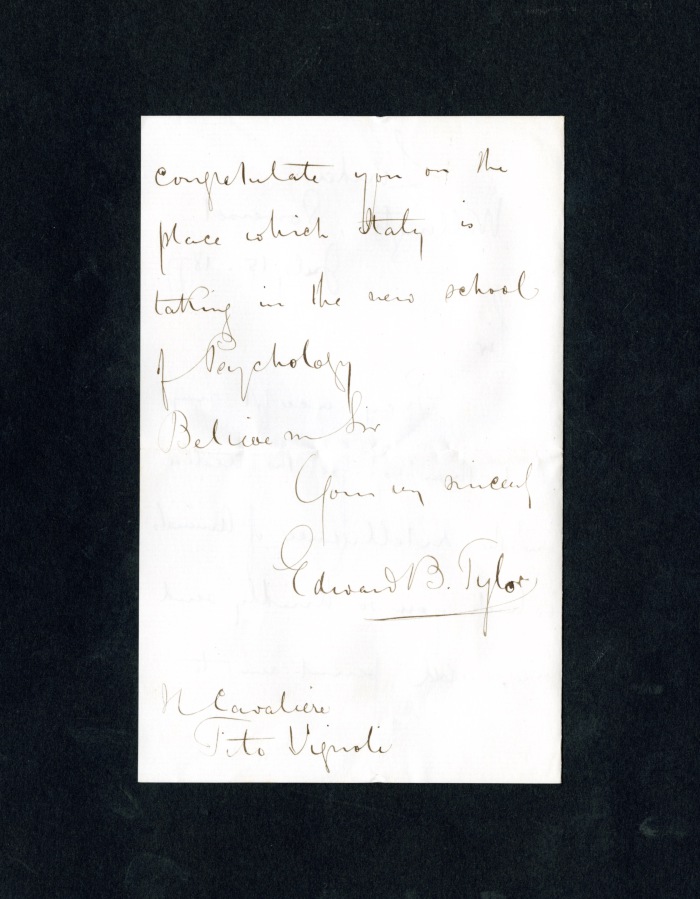 congratulate you on the
place which Italy is
taking in the new school
of Psychology
Believe me Sir
Yours very sincerely
Edward B. Tylor
Il Cavaliere
Tito Vignoli